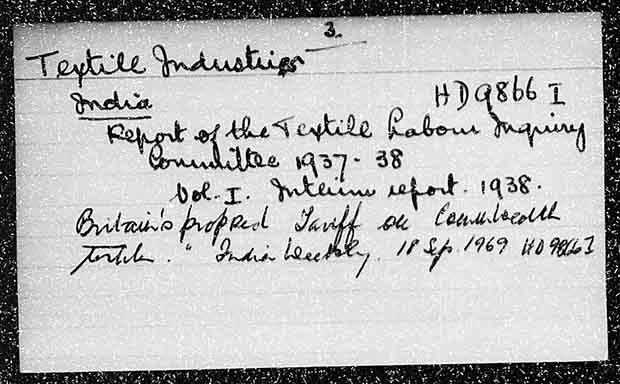 3.
Textile Industries
India HD9866 I
Report of the Textile Labour Inquiry
Committee 1937-38
Vol. I. Interim report. 1938.
Britain's proposed Tariff on Commonwealth
Textiles." India Weekly. 18 Sep. 1969 HD9866 I